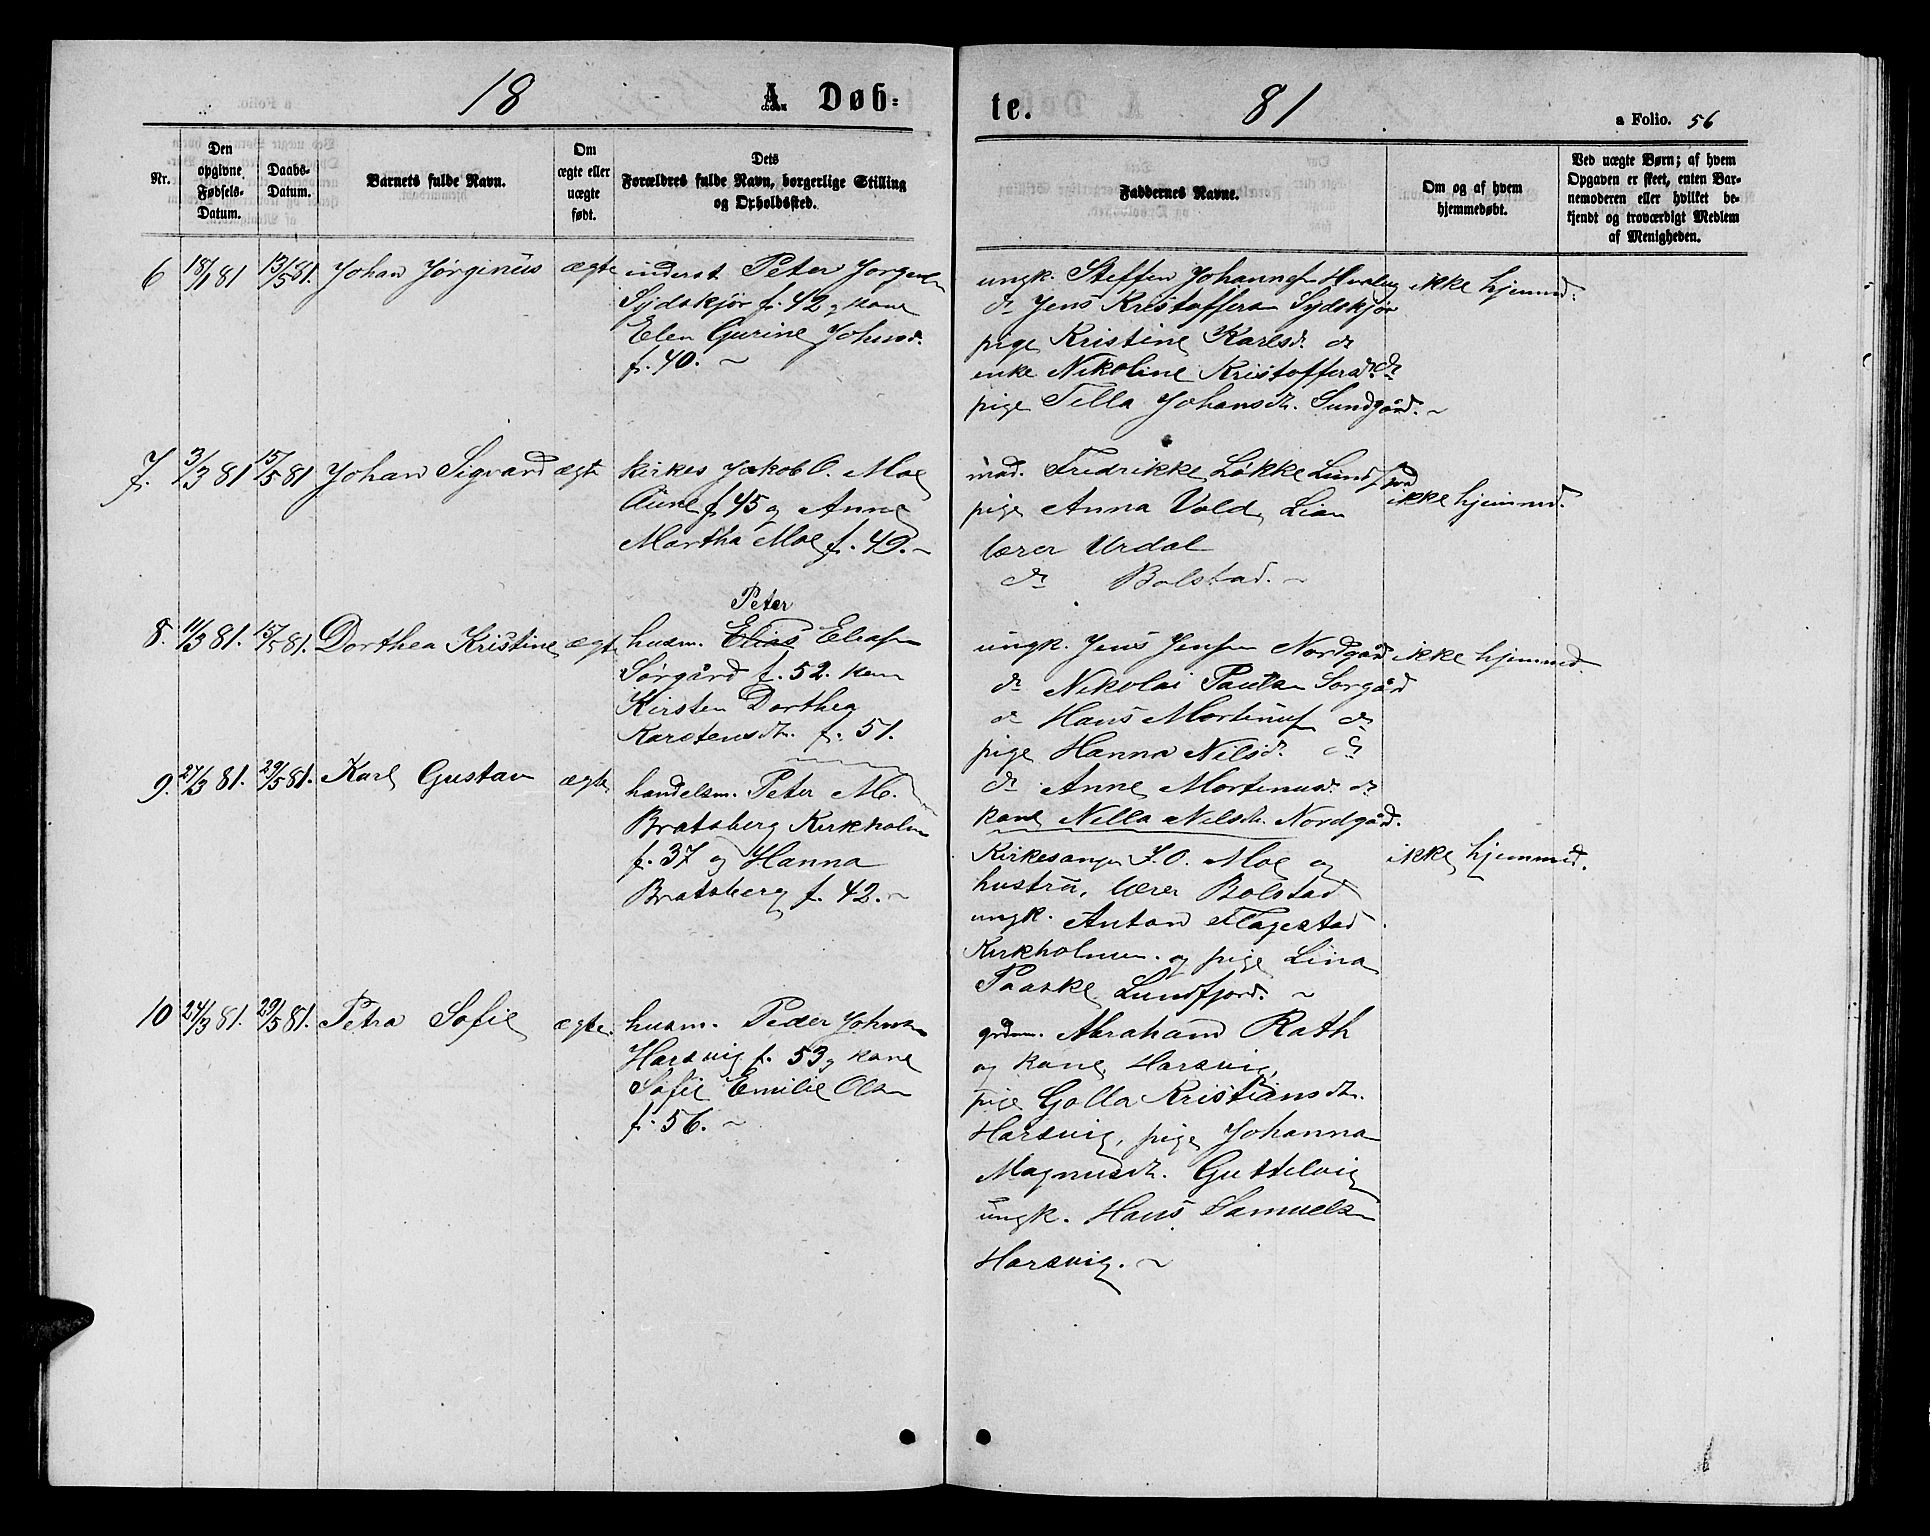 18 A. Døb-
Nr.
Den opgivne Fødsels-Datum.
Daabs-Datum.
Barnets fulde Navn.
Om ægte eller uægte født.
Dets Forældres fulde Navn, borgerlige Stilling og Opholdssted.
6 18/1 81 13/5 81. Johan Jørginus ægte inderst Peter Jørgens.
Sydskjør f. 42 og kone
Elen Gurine Johnsd.
f. 40. ~
7. 3/3 81 15/5 81 Johan Sigvard ægte kirkes Jakob O. Moe
Aune f 45 og Anne
Martha Moe f. 49. ~
Peter
8. 11/3 81. 15/5 81. Dorthea Kristine ægte husm. Elias Eliass.
Sørgård f. 52. kone
Kirsten Dorthea
Karstensdtr. f. 51.
9. 27/3 81. 29/5 81. Karl Gustav ægte handelsm. Peter M.
Bratsberg Kirkholm
f. 37 og Hanna
Bratsberg f. 42. ~
10 24/3 81. 29/5 81. Petra Sofie ægte husm. Peder Johns.
Harsvig f. 53 og kone
Sofie Emilie Ols.
f. 56. ~
te. 81
a Folio. 56
Faddernes Navne.
Om og af hvem hjemmedøbt.
Ved uægte Børn; af hvem
Opgaven er skeet, enten Bar-
nemoderen eller hvilket be-
kjendt og troværdigt Medlem
af Menigheden.
ungk. Steffen Johannes. ikke hjemmed.
do Jens Kristoffers. Sydskjør
pige Kristine Karlsd. do
enke Nikoline Kristoffersd. do
pige Tella Johansdtr. Sundgård. ~
mad. Fredrikke Løkke Lundfjord
pige Anna Vold, Lian ikke hjemmed.
lærer Urdal
do Bolstad. ~
ungk. Jens Jens. Nordgård ikke hjemmed.
do Nikolai Pauls. Sørgård
do Hans Mortinus. do
pige Hanna Nilsd. do
do Anne Mortinusd. do
kone Nella Nilsdtr. Nordgård.
Kirkesanger J. O. Moe og ikke hjemmed.
hustru, lærer Bolstad
ungk. Anton Flagestad
Kirkholmen. og pige Lina
Paaske Lundfjord. ~
grdm. Abraham Rath
og kone Harsvig,
pige Golla Kristiansdtr.
Harsvig, pige Johanna
Magnusdtr. Guttelvig
ungk. Hans Samuels.
Harsvig. ~